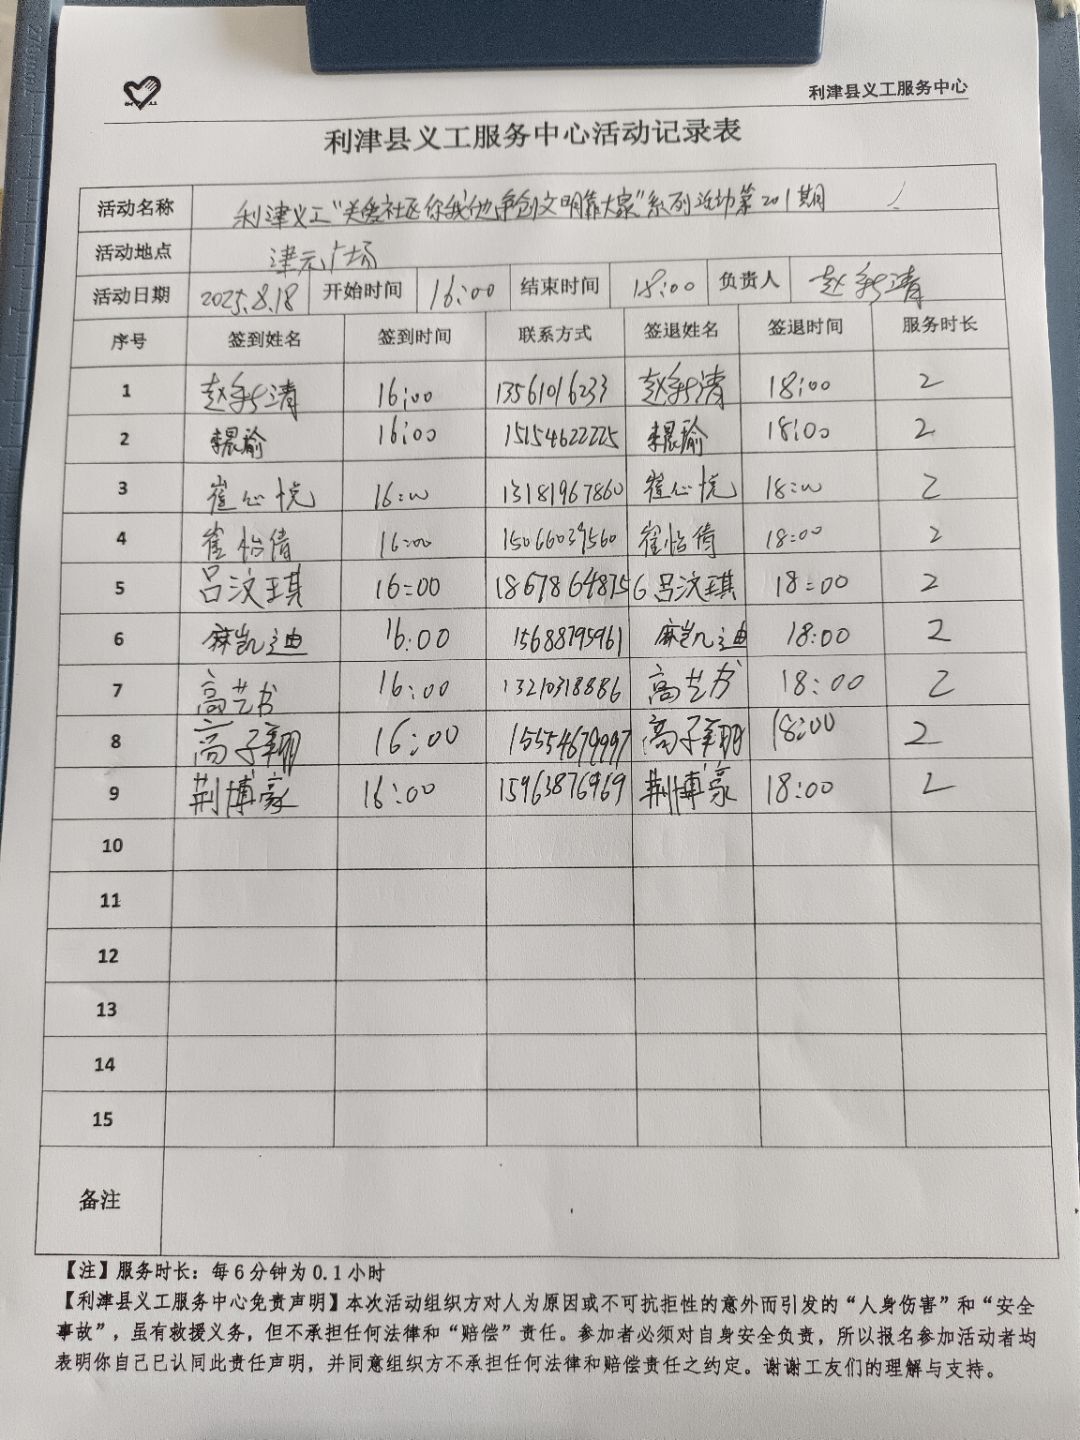 利津县义工服务中心
利津县义工服务中心活动记录表
活动名称 利津义工“关爱社区你我他争创文明靠大家”系列活动第201期
活动地点 津元广场
活动日期 2025.8.18 开始时间 16:00 结束时间 18:00 负责人 赵新清
序号 签到姓名 签到时间 联系方式 签退姓名 签退时间 服务时长
1 赵新清 16:00 13561016233 赵新清 18:00 2
2 李晨瑜 16:00 15154622225 李晨瑜 18:00 2
3 崔心悦 16:00 13181967860 崔心悦 18:00 2
4 崔怡倩 16:00 15066039560 崔怡倩 18:00 2
5 吕汶琪 16:00 18678648756 吕汶琪 18:00 2
6 麻凯迪 16:00 15688795961 麻凯迪 18:00 2
7 高艺方 16:00 13210318886 高艺方 18:00 2
8 高子翔 16:00 15554679997 高子翔 18:00 2
9 荆博豪 16:00 15963876969 荆博豪 18:00 2
10
11
12
13
14
15
备注
【注】服务时长：每6分钟为0.1小时
【利津县义工服务中心免责声明】本次活动组织方对人为原因或不可抗拒性的意外而引发的“人身伤害”和“安全
事故”，虽有救援义务，但不承担任何法律和“赔偿”责任。参加者必须对自身安全负责，所以报名参加活动者均
表明你自己已认同此责任声明，并同意组织方不承担任何法律和赔偿责任之约定。谢谢工友们的理解与支持。